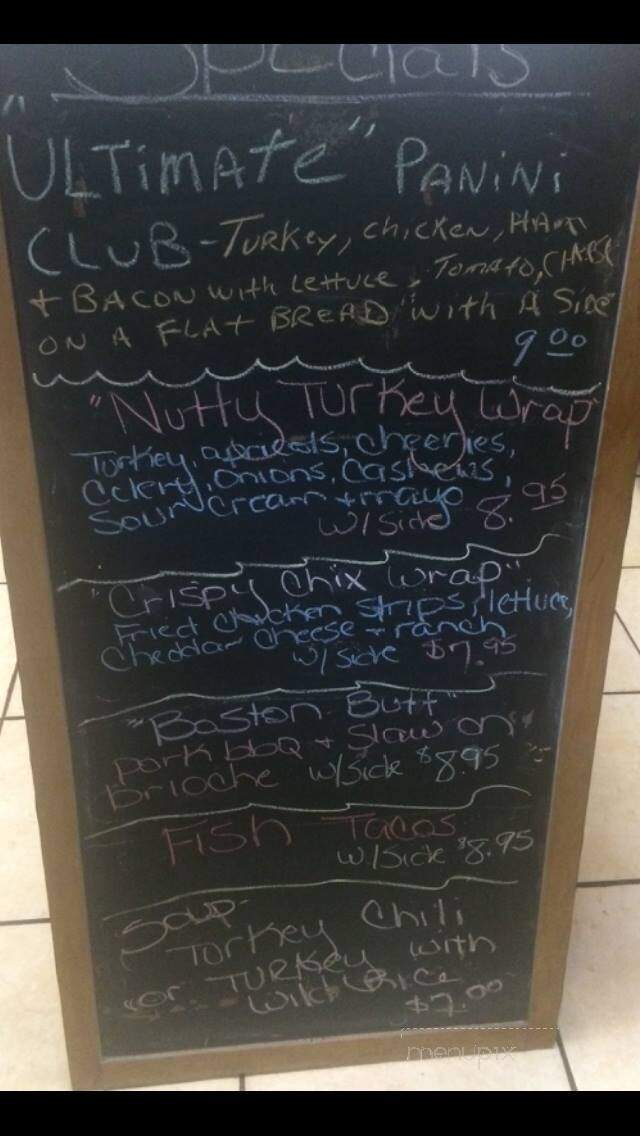 Specials
"ULTiMAte" PANiNi
CLUB - TURKey, chicken, HAm
+ BACON with Lettuce, TOMATO, CHeese
ON A FLAt BREAD with A Side
9 00
"Nutty Turkey Wrap"
Turkey, apricots, cherries,
Celery, onions, Cashews,
Sour Cream + mayo
w/ side 8.95
"Crispy Chix Wrap"
Fried Chicken Strips, lettuce,
Cheddar Cheese + ranch
w/ side $7.95
"Boston Butt"
Pork bbq + Slaw on
brioche w/ Side $8.95
Fish Tacos
w/ Side $8.95
Soup-
Turkey Chili
or Turkey with
Wild Rice
$7.00
menupix